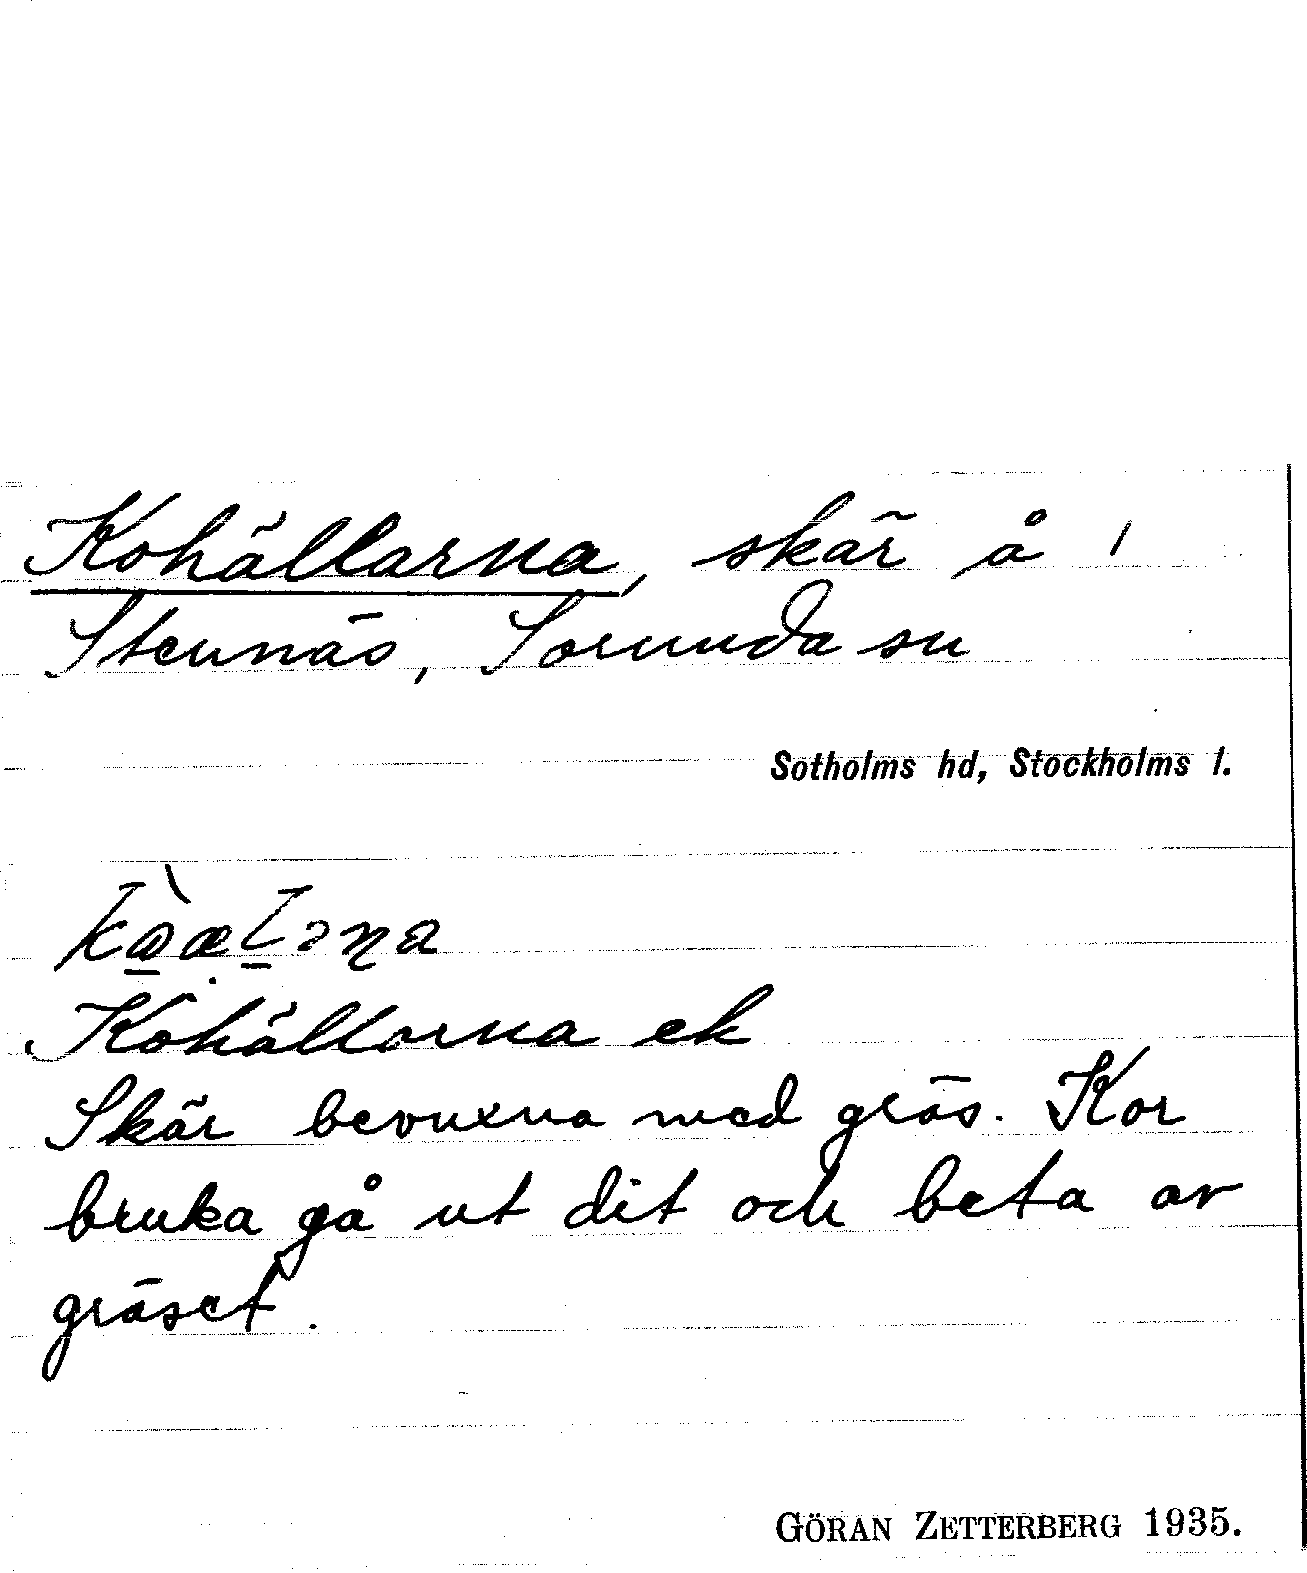 Kohällarna, skär å /
Stennäs, Sorunda sn
Sotholms hd, Stockholms l.
Kohällorna ek
Skär bevuxna med gräs. Kor
bruka gå ut dit och beta av
gräset.
GÖRAN ZETTERBERG 1935.